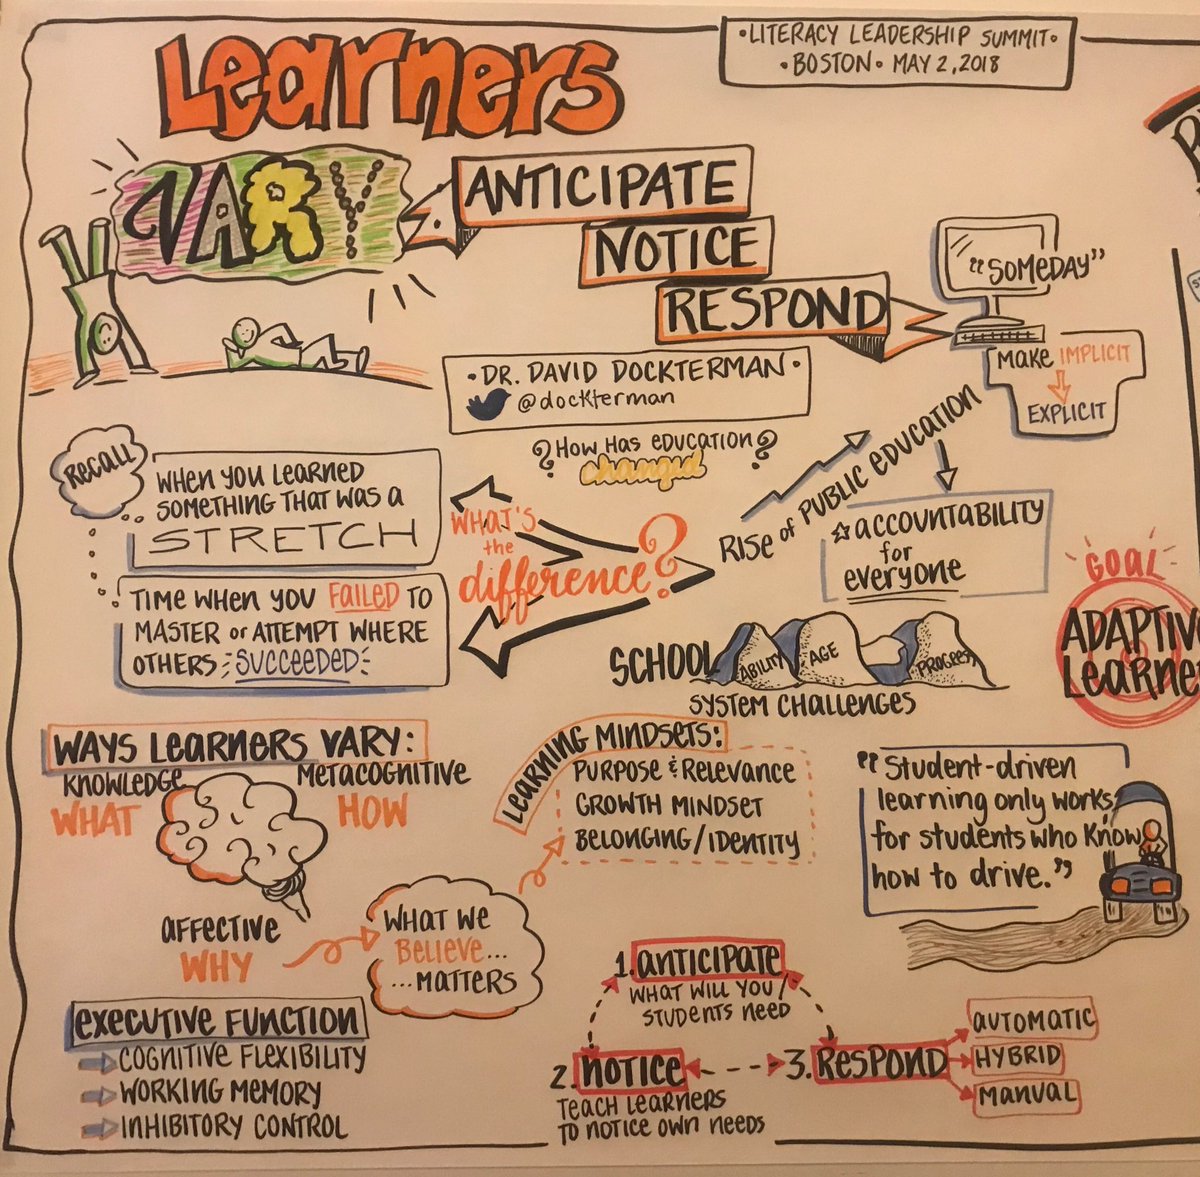 Learners
VARY
ANTICIPATE
NOTICE
RESPOND
•LITERACY LEADERSHIP SUMMIT•
•BOSTON• MAY 2, 2018
"SOMEDAY"
MAKE IMPLICIT
EXPLICIT
•DR. DAVID DOCKTERMAN•
@dockterman
? HOW HAS EDUCATION ?
changed
RECALL
WHEN YOU LEARNED
SOMETHING THAT WAS A
STRETCH
TIME WHEN YOU FAILED TO
MASTER or ATTEMPT WHERE
OTHERS SUCCEEDED
WHAT'S
the
difference?
RISE of PUBLIC EDUCATION
ACCOUNTABILITY
for
everyone
SCHOOL
ABILITY
AGE
PROGRESS
SYSTEM CHALLENGES
GOAL
ADAPTIVE
Learne
WAYS LEARNERS VARY:
KNOWLEDGE
WHAT
METACOGNITIVE
HOW
AFFECTIVE
WHY
WHAT WE
BELIEVE...
...MATTERS
LEARNING MINDSETS:
PURPOSE & RELEVANCE
GROWTH MINDSET
BELONGING/IDENTITY
"Student-driven
learning only works
for students who know
how to drive."
EXECUTIVE FUNCTION
COGNITIVE FLEXIBILITY
WORKING MEMORY
INHIBITORY CONTROL
1. ANTICIPATE
WHAT WILL YOU/
STUDENTS NEED
2. NOTICE
TEACH LEARNERS
TO NOTICE OWN NEEDS
3. RESPOND
AUTOMATIC
HYBRID
MANUAL